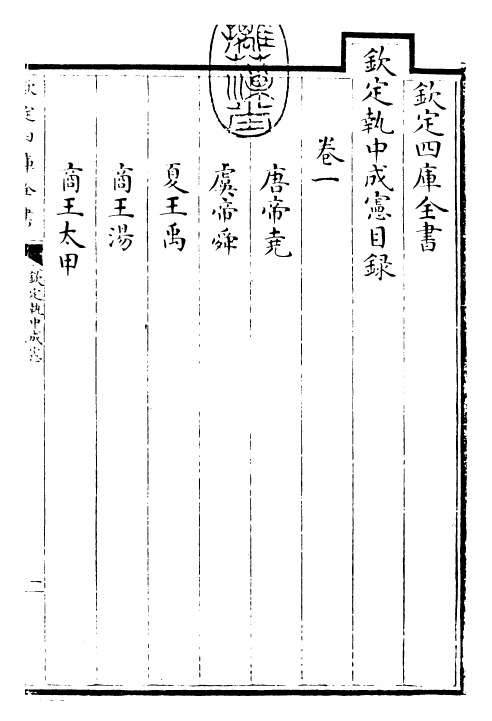 欽定四庫全書
欽定執中成憲目録
卷一
唐帝堯
虞帝舜
夏王禹
商王湯
商王太甲
欽定四庫全書
欽定執中成憲
二